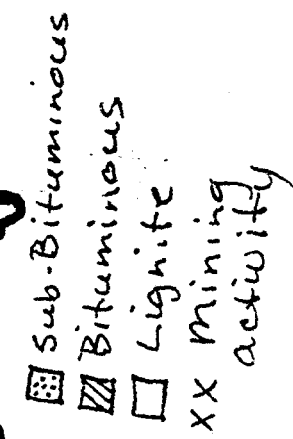 Sub-Bituminous
Bituminous
Lignite
XX Mining
activity